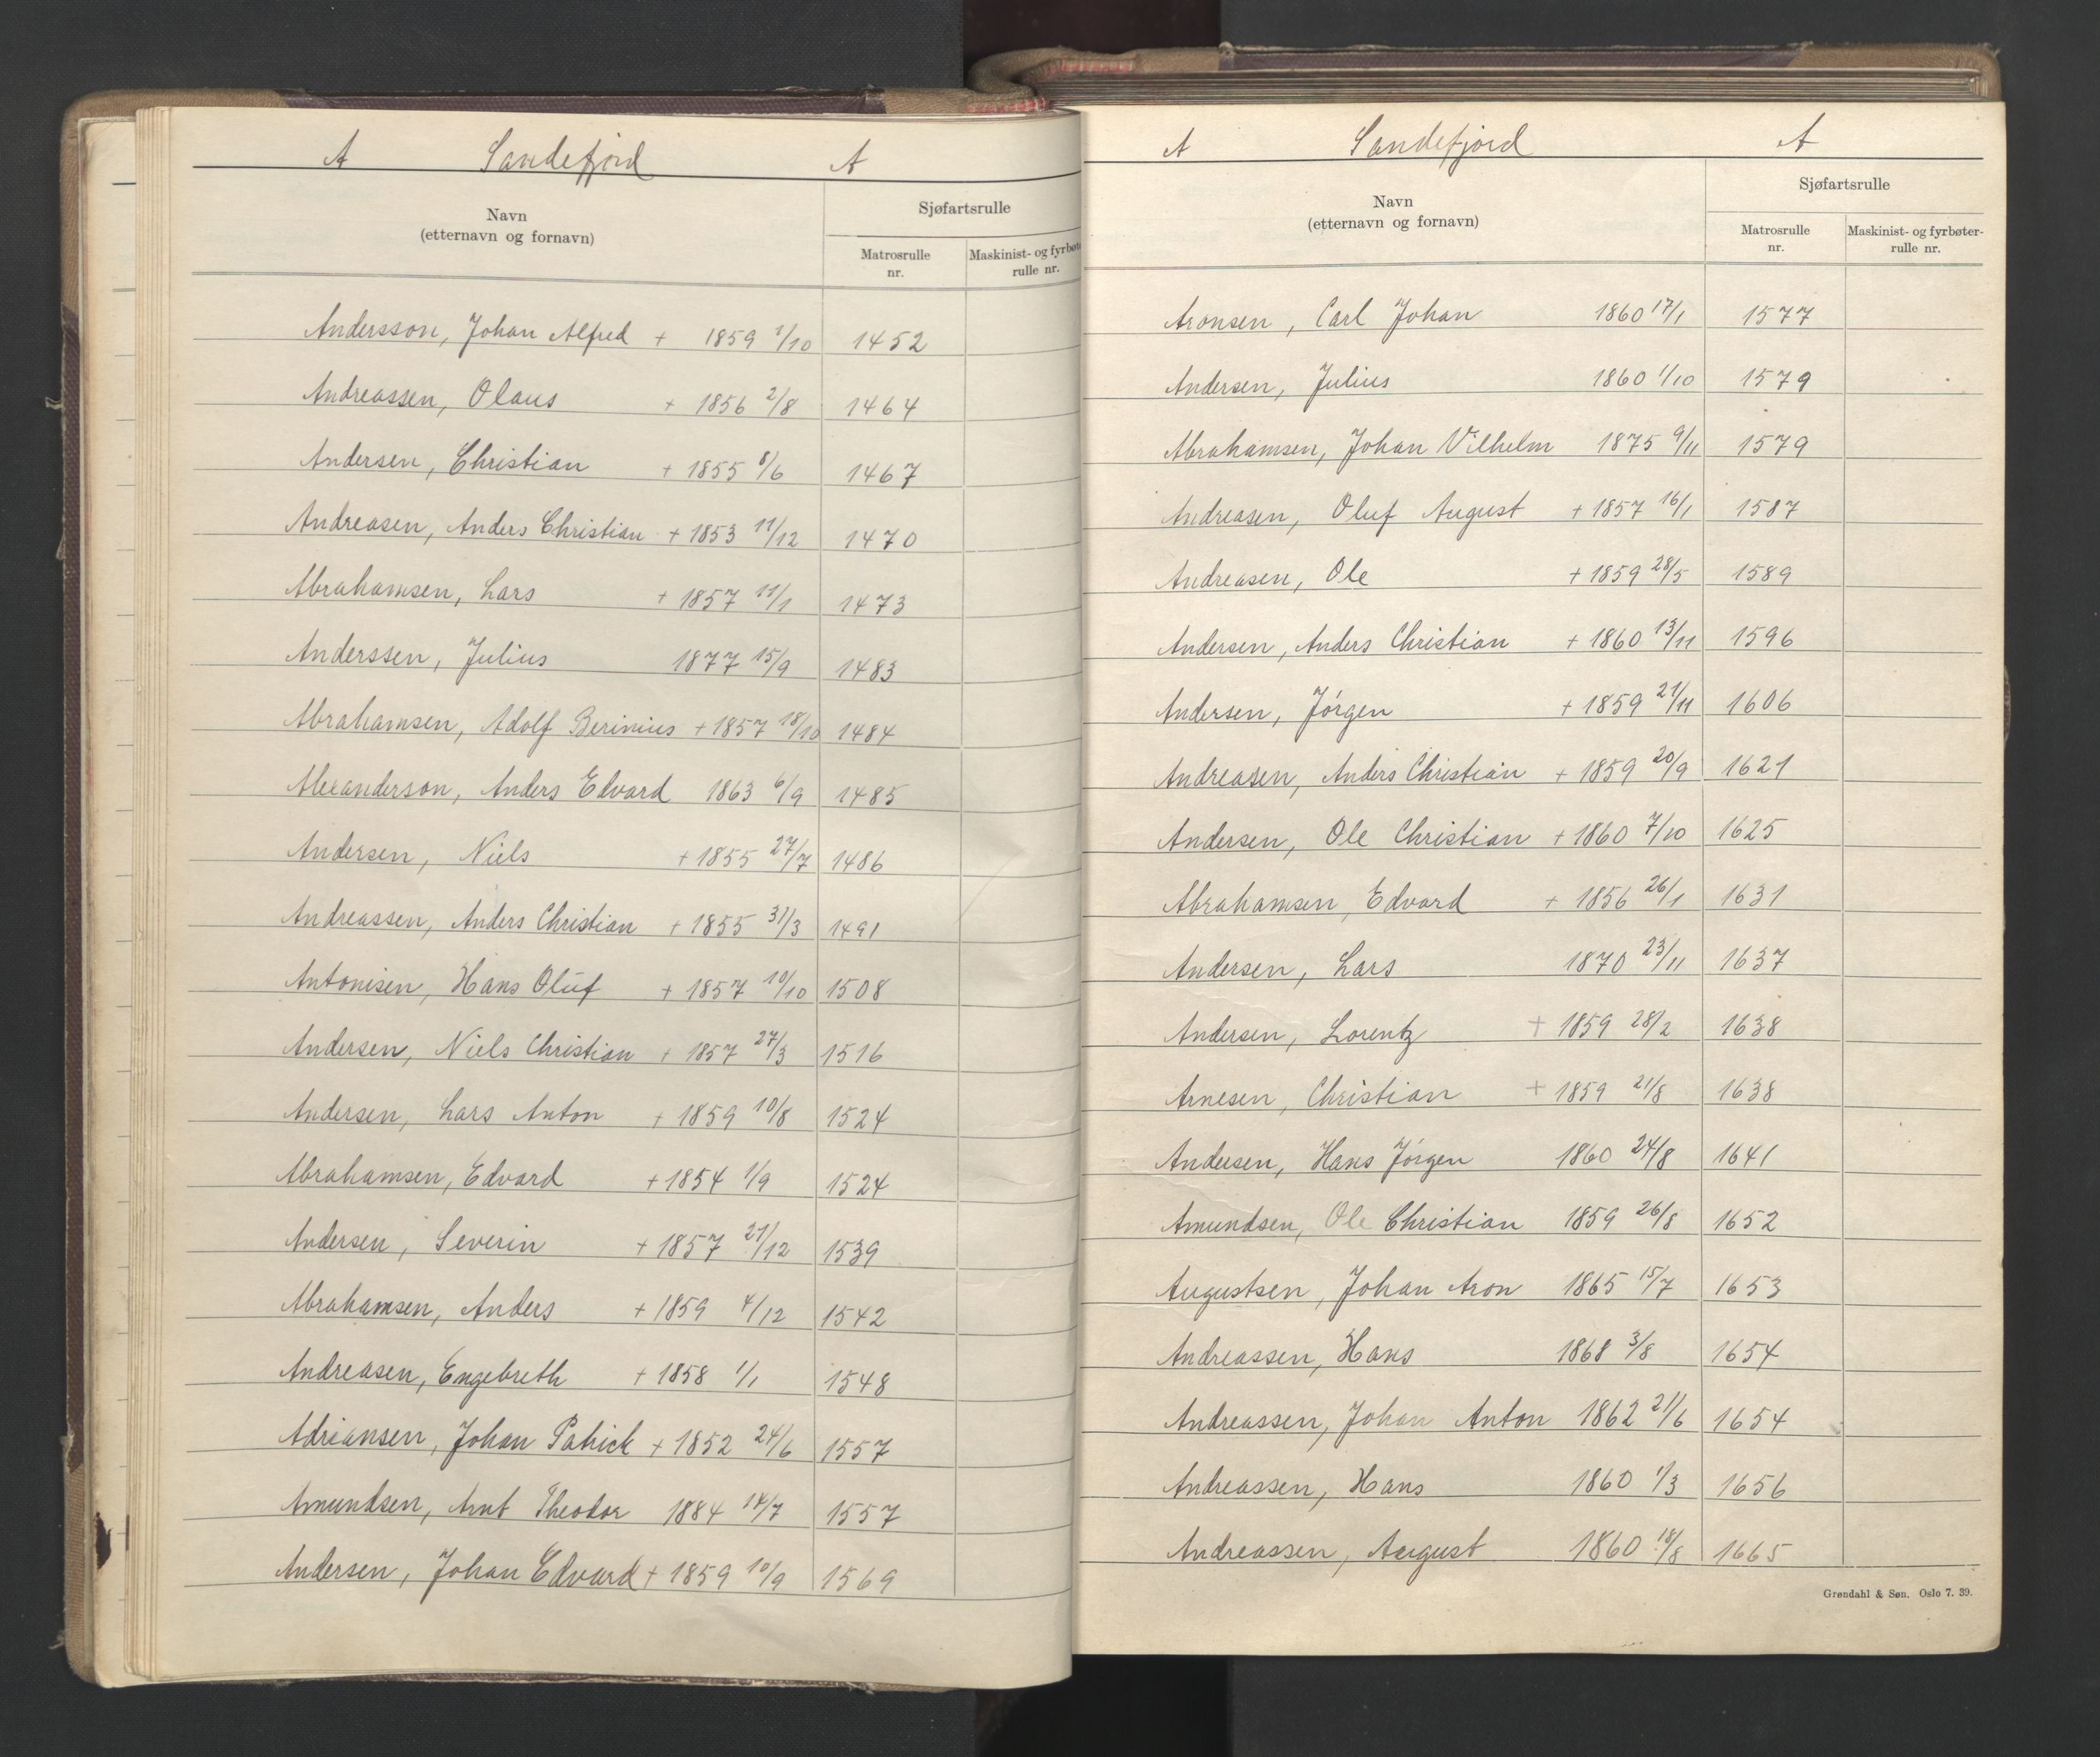 A Sandefjord A
Navn
(etternavn og fornavn)
Sjøfartsrulle
Matrosrulle
nr.
Maskinist- og fyrbøt
rulle nr.
Andersson, Johan Alfred + 1859 1/10 1452
Andreassen, Olaus + 1856 2/8 1464
Andersen, Christian + 1855 8/6 1467
Andreasen, Anders Christian + 1853 11/12 1470
Abrahamsen, Lars + 1857 11/1 1473
Anderssen, Julius 1877 15/9 1483
Abrahamsen, Adolf Berinius + 1857 18/10 1484
Alexanderson, Anders Edvard 1863 6/9 1485
Andersen, Niels + 1855 27/7 1486
Andreassen, Anders Christian + 1855 31/3 1491
Antonisen, Hans Oluf + 1857 10/10 1508
Andersen, Niels Christian + 1857 27/3 1516
Andersen, Lars Anton + 1859 10/8 1524
Abrahamsen, Edvard + 1854 1/9 1524
Andersen, Severin + 1857 21/12 1539
Abrahamsen, Anders + 1859 4/12 1542
Andreasen, Engebreth + 1858 1/1 1548
Adriansen, Johan Patrick + 1852 24/6 1557
Amundsen, Arnt Theodor 1884 14/7 1557
Andersen, Johan Edvard + 1859 10/9 1569
A Sandefjord A
Navn
(etternavn og fornavn)
Sjøfartsrulle
Matrosrulle
nr.
Maskinist- og fyrbøter-
rulle nr.
Aronsen, Carl Johan 1860 17/1 1577
Andersen, Julius 1860 1/10 1579
Abrahamsen, Johan Vilhelm 1875 9/11 1579
Andreasen, Oluf August + 1857 16/1 1587
Andreasen, Ole + 1859 28/5 1589
Andersen, Anders Christian + 1860 13/11 1596
Andersen, Jørgen + 1859 21/11 1606
Andreasen, Anders Christian + 1859 20/9 1621
Andersen, Ole Christian + 1860 7/10 1625
Abrahamsen, Edvard + 1856 26/1 1631
Andersen, Lars 1870 23/11 1637
Andersen, Lorentz + 1859 28/2 1638
Arnesen, Christian + 1859 21/8 1638
Andersen, Hans Jørgen 1860 24/8 1641
Amundsen, Ole Christian 1859 26/8 1652
Augustsen, Johan Aron 1865 15/7 1653
Andreassen, Hans 1868 3/8 1654
Andreassen, Johan Anton 1862 21/6 1654
Andreassen, Hans 1860 1/3 1656
Andreassen, August 1860 18/8 1665
Grøndahl & Søn. Oslo 7. 39.